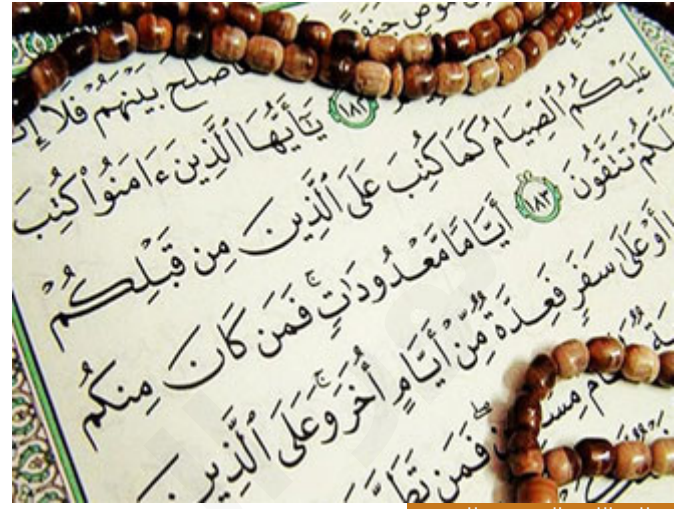 مُوصٍ جَنَفًا
فَأَصْلَحَ بَيْنَهُمْ فَلَا
١٨٢ يَٰٓأَيُّهَا ٱلَّذِينَ ءَامَنُوا۟ كُتِبَ
عَلَيْكُمُ ٱلصِّيَامُ كَمَا كُتِبَ عَلَى ٱلَّذِينَ مِن قَبْلِكُمْ
لَعَلَّكُمْ تَتَّقُونَ ١٨٣ أَيَّامًا مَّعْدُودَٰتٍ ۚ فَمَن كَانَ مِنكُم
أَوْ عَلَىٰ سَفَرٍ فَعِدَّةٌ مِّنْ أَيَّامٍ أُخَرَ ۚ وَعَلَى ٱلَّذِينَ
فَمَن